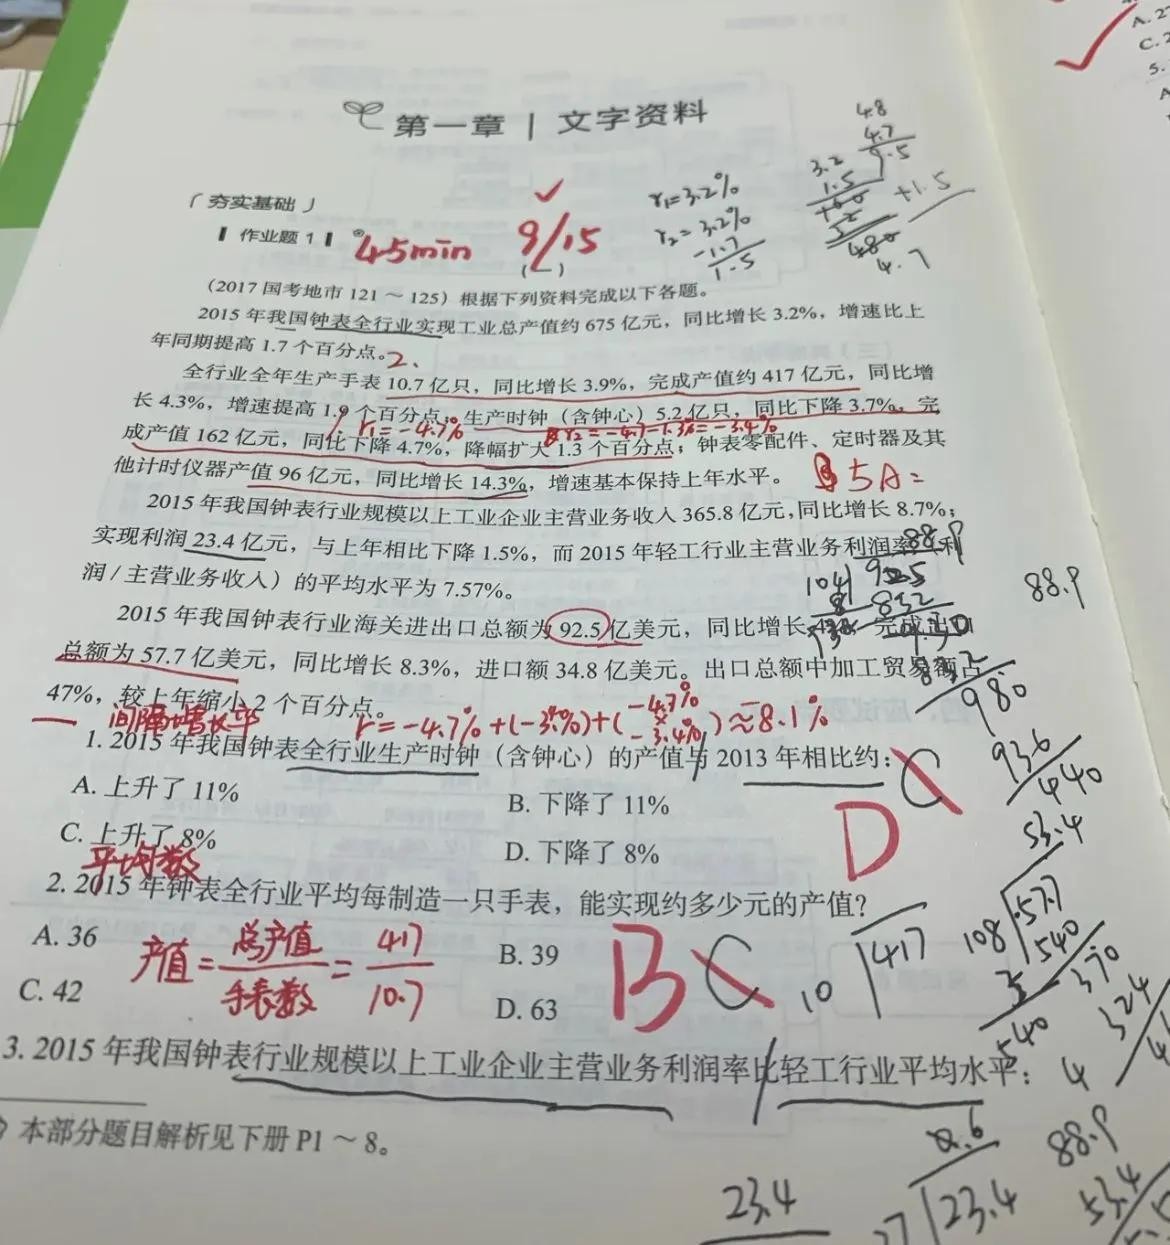 第一章 | 文字资料
「夯实基础」
作业题 1
45min 9/15
(一)
r₁=3.2%
r₂=3.2%
-1.7
1.5
4.8
4.7
9.5
3.2
1.5
+1.5
4.7
(2017 国考地市 121 ~ 125) 根据下列资料完成以下各题。
2015 年我国钟表全行业实现工业总产值约 675 亿元,同比增长 3.2%,增速比上
年同期提高 1.7 个百分点。2、
全行业全年生产手表 10.7 亿只,同比增长 3.9%,完成产值约 417 亿元,同比增
长 4.3%,增速提高 1.9 个百分点;生产时钟(含钟心)5.2 亿只,同比下降 3.7%,完
1. r₁=-4.7% r₂=-4.7-1.3%=-3.4%
成产值 162 亿元,同比下降 4.7%,降幅扩大 1.3 个百分点;钟表零配件、定时器及其
他计时仪器产值 96 亿元,同比增长 14.3%,增速基本保持上年水平。
5A=
2015 年我国钟表行业规模以上工业企业主营业务收入 365.8 亿元,同比增长 8.7%;
实现利润 23.4 亿元,与上年相比下降 1.5%,而 2015 年轻工行业主营业务利润率
利
润/主营业务收入)的平均水平为 7.57%。
88.9
104 925
832
88.9
2015 年我国钟表行业海关进出口总额为 92.5 亿美元,同比增长
总额为 57.7 亿美元,同比增长 8.3%,进口额 34.8 亿美元。出口总额中加工贸易额占
47%,较上年缩小 2 个百分点。
980
936
440
间隔增长率 r=-4.7%+(-3.4%)+(-4.7%×-3.4%)≈8.1%
1. 2015 年我国钟表全行业生产时钟(含钟心)的产值与 2013 年相比约:
C
D
A. 上升了 11%
B. 下降了 11%
C. 上升了 8%
D. 下降了 8%
平均数
53.4
108 57.7
540
370
324
540
4
2. 2015 年钟表全行业平均每制造一只手表,能实现约多少元的产值?
A. 36
B. 39
C. 42
D. 63
产值=总产值/手表数=417/10.7
B C
10 417
3. 2015 年我国钟表行业规模以上工业企业主营业务利润率比轻工行业平均水平:
本部分题目解析见下册 P1 ~ 8。
23.4
23.4
88.9
53.4